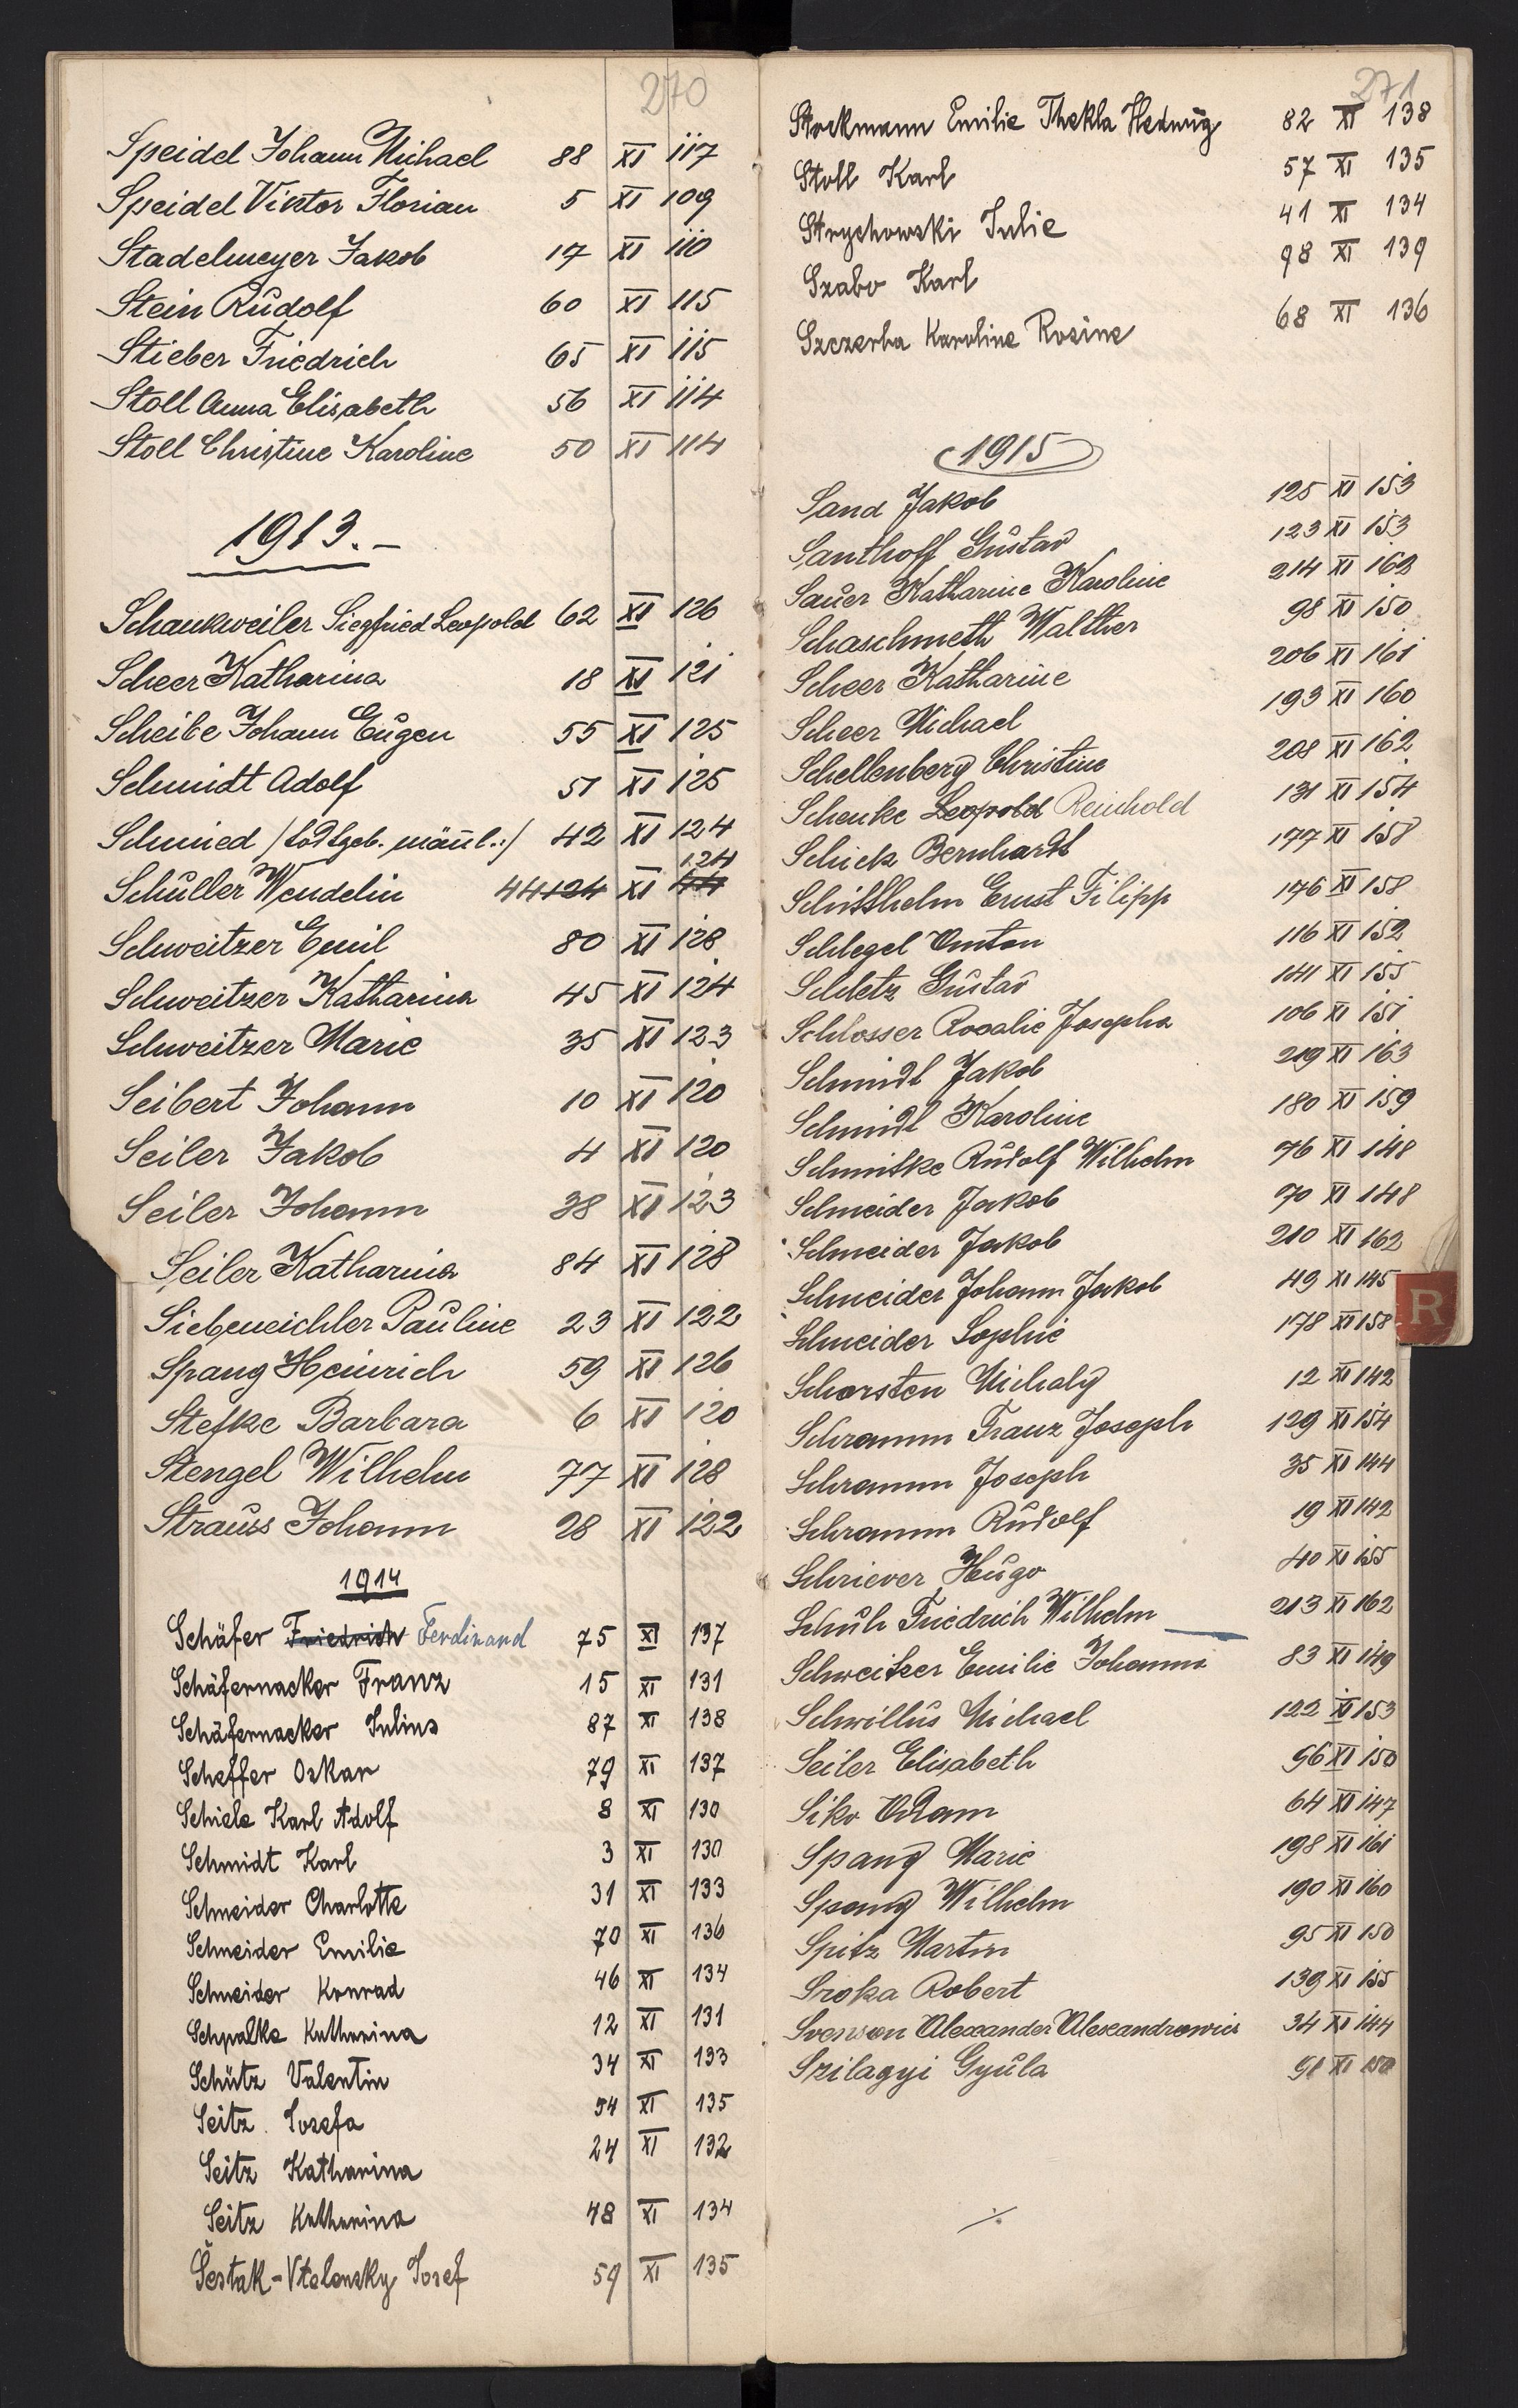 270
Speidel Johann Michael 88 XI 117
Speidel Viktor Florian 5 XI 109
Stadelmeyer Jakob 17 XI 110
Stein Rudolf 60 XI 115
Stieber Friedrich 65 XI 115
Stoll Anna Elisabeth 56 XI 114
Stoll Christine Karoline 50 XI 114
1913.-
Schankweiler Siegfried Leopold 62 XI 126
Scheer Katharina 18 XI 121
Scheibe Johann Eugen 55 XI 125
Schmidt Adolf 51 XI 125
Schmied /: todtgeb. männl. :/ 42 XI 124
Schuller Wendelin 44 124 XI 44 124
Schweitzer Emil 80 XI 128
Schweitzer Katharina 45 XI 124
Schweitzer Marie 35 XI 123
Seibert Johann 10 XI 120
Seiler Jakob 4 XI 120
Seiler Johann 38 XI 123
Seiler Katharina 84 XI 128
Siebeneichler Pauline 23 XI 122
Spang Heinrich 59 XI 126
Stefke Barbara 6 XI 120
Stengel Wilhelm 77 XI 128
Strauss Johann 28 XI 122
1914
Schäfer Friedrich Ferdinand 75 XI 137
Schäfernacker Franz 15 XI 131
Schäfernacker Julius 87 XI 138
Scheffer Oskar 79 XI 137
Schiele Karl Adolf 8 XI 130
Schmidt Karl 3 XI 130
Schneider Charlotte 31 XI 133
Schneider Emilie 70 XI 136
Schneider Konrad 46 XI 134
Schpalke Katharina 12 XI 131
Schütz Valentin 34 XI 133
Seitz Josefa 54 XI 135
Seitz Katharina 24 XI 132
Seitz Katharina 48 XI 134
Šestak-Vtelensky Josef 59 XI 135
271
Stockmann Emilie Thekla Hedwig 82 XI 138
Stoll Karl 57 XI 135
Strychowski Julie 41 XI 134
Szabo Karl 98 XI 139
Szczerba Karoline Rosine 68 XI 136
1915
Sand Jakob 125 XI 153
Santhoff Gustav 123 XI 153
Sauer Katharine Karoline 214 XI 162
Schaschmeth Walther 98 XI 150
Scheer Katharine 206 XI 161
Scheer Michael 193 XI 160
Schellenberg Christine 208 XI 162
Schenke Leopold Reinhold 131 XI 154
Schick Bernhardt 177 XI 158
Schittlhelm Ernst Filipp 176 XI 158
Schlegel Anton 116 XI 152
Schletz Gustav 141 XI 155
Schlosser Rosalie Josepha 106 XI 151
Schmidt Jakob 219 XI 163
Schmidt Karoline 180 XI 159
Schmitke Rudolf Wilhelm 76 XI 148
Schneider Jakob 70 XI 148
Schneider Jakob 210 XI 162
Schneider Johann Jakob 49 XI 145
Schneider Sophie 178 XI 158
Schorsten Michaly 12 XI 142
Schramm Franz Joseph 129 XI 154
Schramm Joseph 35 XI 144
Schramm Rudolf 19 XI 142
Schriever Hugo 40 XI 155
Schuh Friedrich Wilhelm 213 XI 162
Schweitzer Emilie Johanna 83 XI 149
Schwillus Michael 122 XI 153
Seiler Elisabeth 96 XI 150
Siko Adam 64 XI 147
Spang Marie 198 XI 161
Spang Wilhelm 190 XI 160
Spitz Martin 95 XI 150
Sroka Robert 139 XI 155
Svenson Alexander Alexandrowics 34 XI 144
Szilagyi Gyula 91 XI 150
R